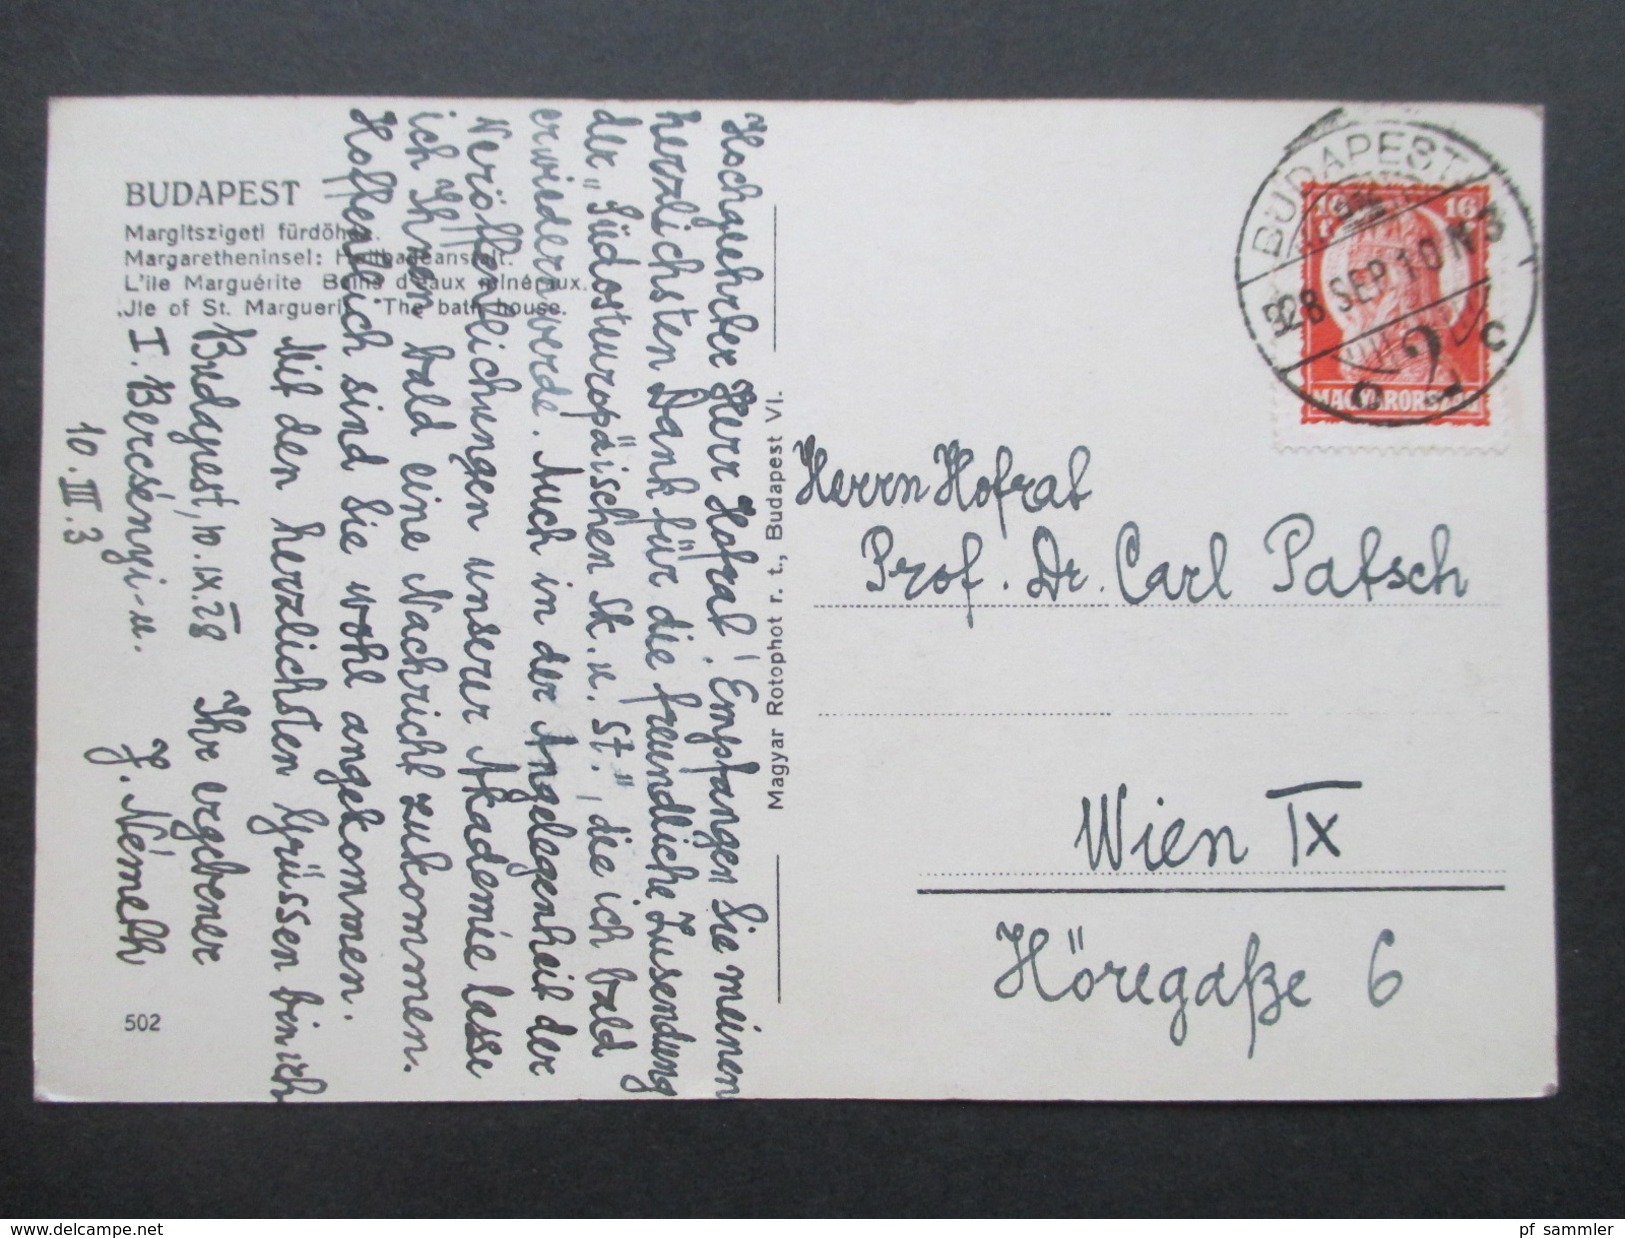 BUDAPEST
Margitszigeti fürdőház.
Margaretheninsel: Heilbadeanstalt.
L'ile Marguérite Bains d'eaux minéraux.
Jle of St. Marguerit The bath house.
Hochgeehrter Herr Hofrat! Empfangen Sie meinen
herzlichsten Dank für die freundliche Zusendung
der „Südosteuropäischen Sk. u. St.", die ich bald
erwiedern werde. Auch in der Angelegenheit der
Veröffentlichungen unserer Akademie lasse
ich Ihnen bald eine Nachricht zukommen.
Hoffentlich sind Sie wohl angekommen.
Mit den herzlichsten Grüssen bin ich
Budapest, 10.IX.28 Ihr ergebener
I. Bercsényi-u. J. Németh
10. III. 3
502
Magyar Rotophot r. t., Budapest VI.
BUDAPEST
28 SEP 10 N 3
2 c
16 16
MAGYARORSZÁG
Herrn Hofrat
Prof. Dr. Carl Patsch
Wien IX
Höregaße 6
pf_sammler
www.delcampe.net